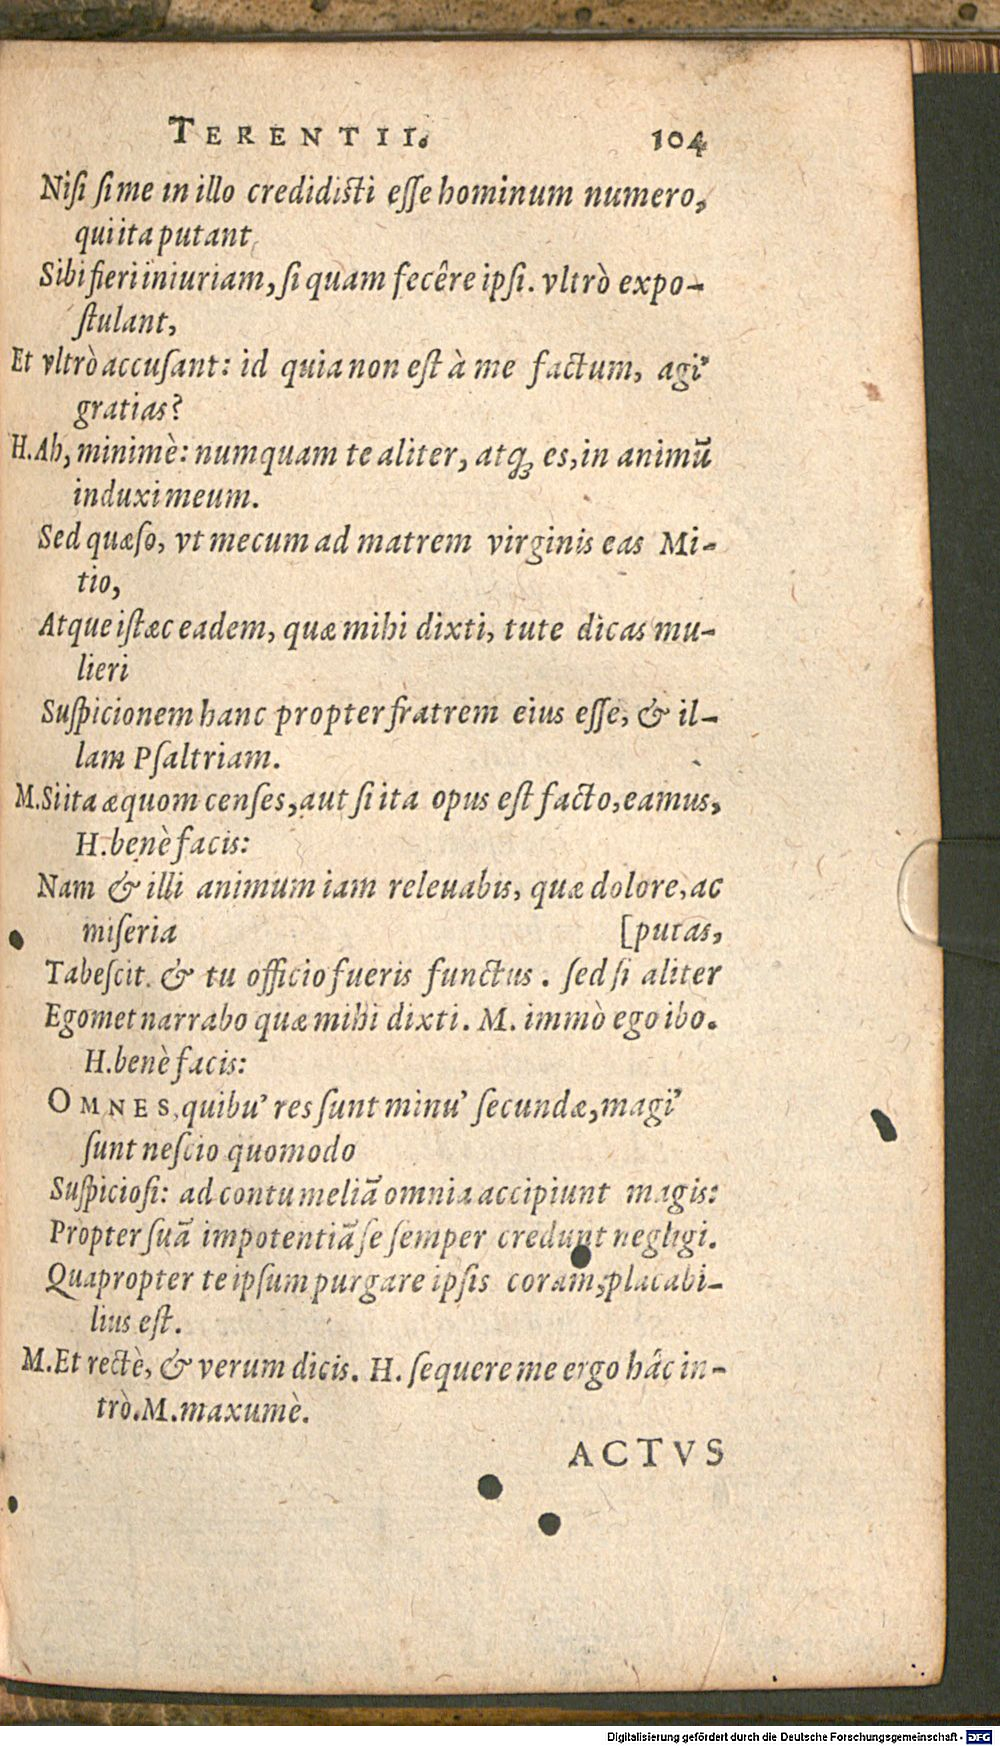 TERENTII. 104
Niſi ſi me in illo credidiſti eſſe hominum numero,
qui ita putant
Sibi fieri iniuriam, ſi quam fecêre ipſi. vltrò expo-
ſtulant,
Et vltrò accuſant: id quia non eſt à me factum, agi'
gratias?
H. Ah, minimè: numquam te aliter, atq́; es, in animū
induxi meum.
Sed quæſo, vt mecum ad matrem virginis eas Mi-
tio,
Atque iſtæc eadem, quæ mihi dixti, tute dicas mu-
lieri
Suſpicionem hanc propter fratrem eius eſſe, & il-
lam Pſaltriam.
M. Si ita æquom cenſes, aut ſi ita opus eſt facto, eamus,
H. benè facis:
Nam & illi animum iam releuabis, quæ dolore, ac
miſeria [putas,
Tabeſcit. & tu officio fueris functus. ſed ſi aliter
Egomet narrabo quæ mihi dixti. M. immò ego ibo.
H. benè facis:
OMNES, quibu' res ſunt minu' ſecundæ, magi'
ſunt neſcio quomodo
Suſpicioſi: ad contumeliā omnia accipiunt magis:
Propter ſuā impotentiā ſe ſemper credunt negligi.
Quapropter te ipſum purgare ipſis coram, placabi-
lius eſt.
M. Et rectè, & verum dicis. H. ſequere me ergo hâc in-
trò. M. maxumè.
ACTVS
Digitalisierung gefördert durch die Deutsche Forschungsgemeinschaft - DFG